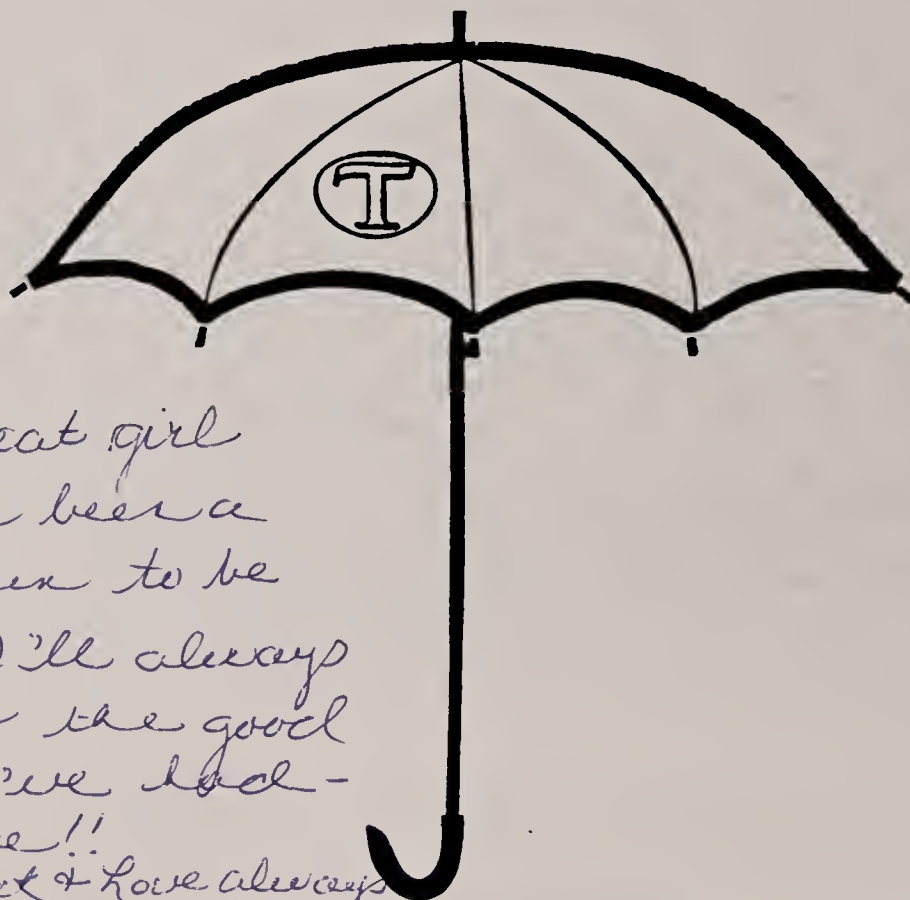 T
eat girl
been a
to be
I'll always
the good
've had-
e!!
k & Love always